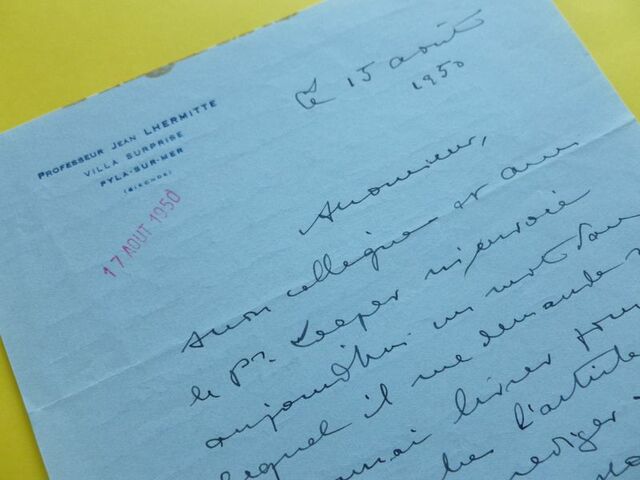 Professeur Jean Lhermitte
Villa Surprise
Pyla-sur-Mer
(Gironde)
17 AOUT 1950
Le 15 août
1950
Monsieur,
Mon collègue et ami
le Pr. m'envoie
aujourd'hui un mot dans
lequel il me demande
livrer pour
l'article
rediger